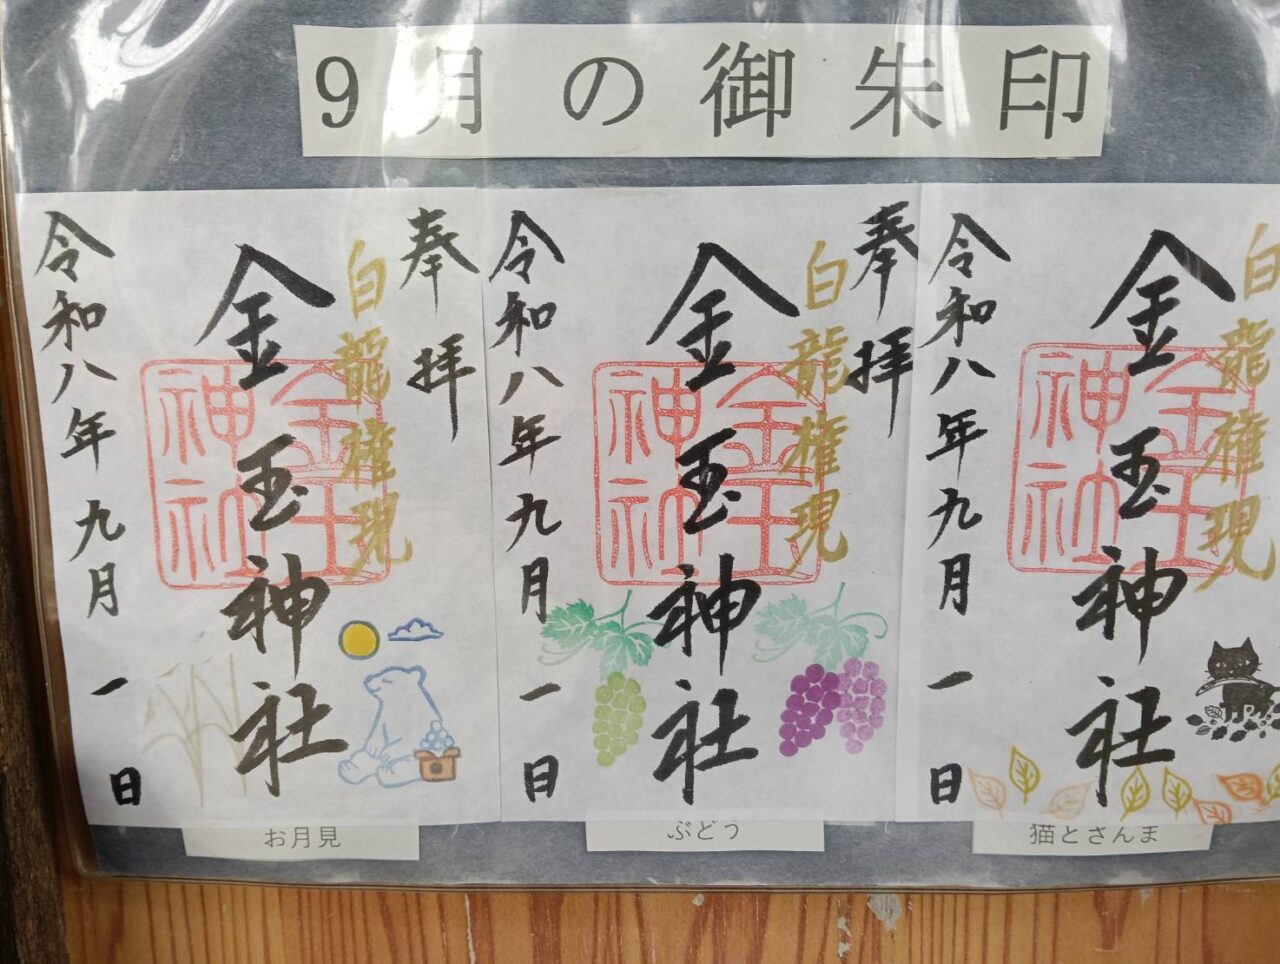 9月の御朱印
奉拝
白龍権現
金玉神社
金玉神社
令和八年九月一日
お月見
奉拝
白龍権現
金玉神社
金玉神社
令和八年九月一日
ぶどう
白龍権現
金玉神社
金玉神社
令和八年九月一日
猫とさんま